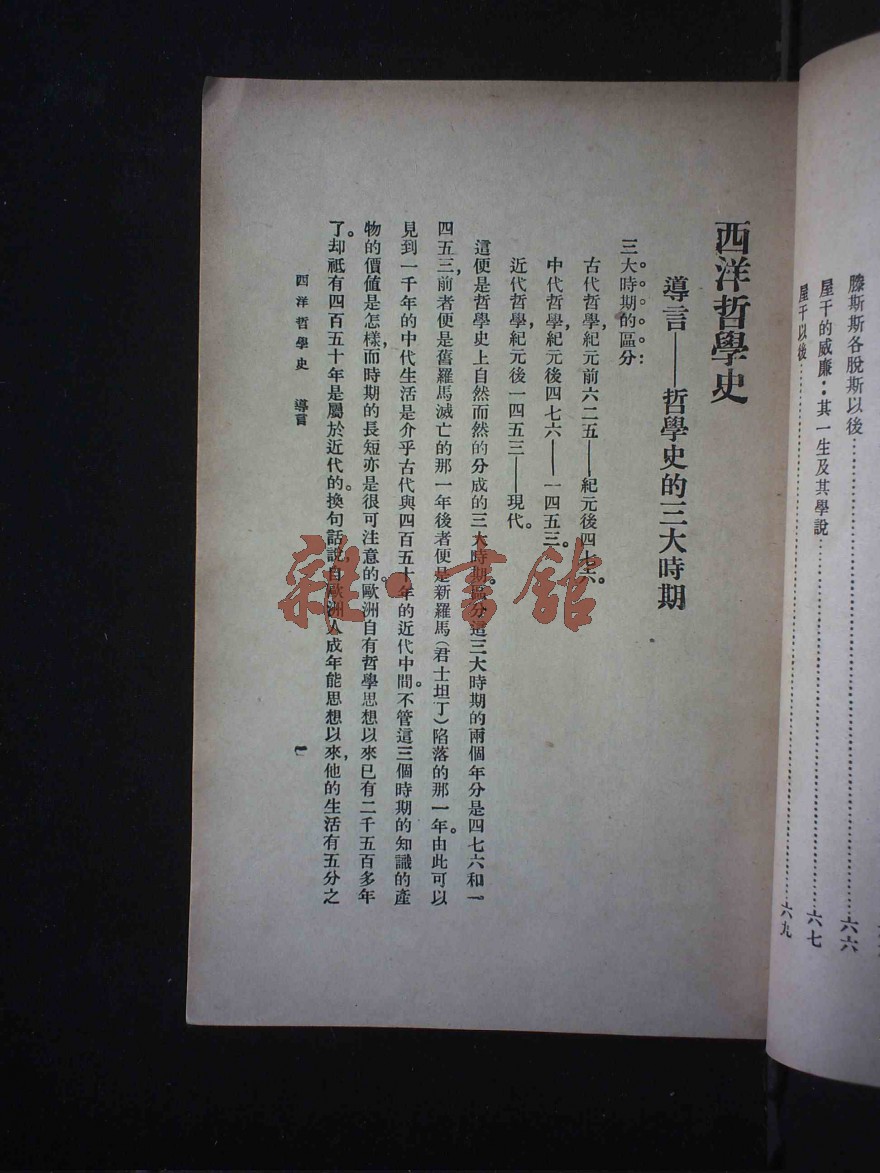 滕斯斯各脫斯以後……………………六六
屋干的威廉：其一生及其學說……………………六七
屋干以後……………………六九
西洋哲學史
導言——哲學史的三大時期
三大時期的區分：
古代哲學，紀元前六二五——紀元後四七六。
中代哲學，紀元後四七六——一四五三。
近代哲學，紀元後一四五三——現代。
這便是哲學史上自然而然的分成的三大時期。區分這三大時期的兩個年分是四七六和一
四五三，前者便是舊羅馬滅亡的那一年後者便是新羅馬（君士坦丁）陷落的那一年。由此可以
見到一千年的中代生活是介乎古代與四百五十年的近代中間。不管這三個時期的知識的產
物的價值是怎樣，而時期的長短亦是很可注意的。歐洲自有哲學思想以來已有二千五百多年
了。却祇有四百五十年是屬於近代的。換句話說，自歐洲人成年能思想以來，他的生活有五分之
西洋哲學史 導言
一
雜·書館